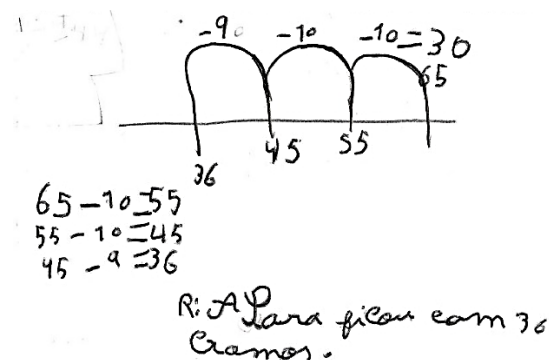 -9 -10 -10=30
65
45 55
36
65-10=55
55-10=45
45-9=36
R: A Lara ficou com 36
Cramos.